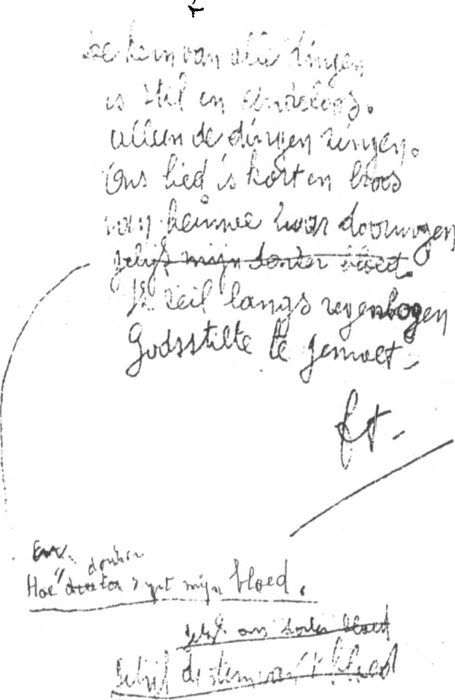 De kern van alle dingen
is stil en eindeloos.
alleen de dingen zingen.
Ons lied is kort en broos
van heimwee zwaar doorwogen
gelijk mijn donker bloed.
Ik zeil langs regenbogen
Godsstilte te gemoet -
ft -
En donker
Hoe zingt mijn bloed.
gelijk ons donker bloed
gelijk de stem van 't bloed